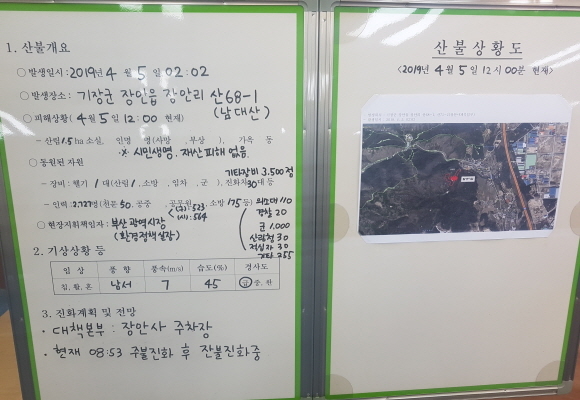 1. 산불개요
○ 발생일시 : 2019년 4월 5일 02:02
○ 발생장소 : 기장군 장안읍 장안리 산68-1
(남대산)
○ 피해상황( 4월 5일 12:00 현재)
- 산림 1.5 ha소실, 인명 명(사망 , 부상 ), 가옥 동
※ 시민생명, 재산피해 없음
○ 동원된 자원
기타장비 3.500점
- 장비 : 헬기 / 대(산림 / , 소방 , 임차 , 군 ), 진화차 30대 등
- 인력 : 2,727명(전문 50, 공중 , 공무원 , 소방 175 등)
(구) : 523
(시) : 564
의소대 110
경찰 20
군 1.000
산림청 30
적십자 30
기타 255
○ 현장지휘책임자 : 부산광역시장
(환경정책실장)
2. 기상상황 등
임 상 풍 향 풍속(m/s) 습도(%) 경사도
침, 활, 혼 남서 7 45 급, 중, 완
3. 진화계획 및 전망
• 대책본부 : 장안사 주차장
• 현재 08:53 주불진화 후 잔불진화중
산불상황도
<2019년 4월 5일 12시 00분 현재>